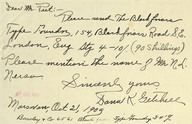 Dear Mr Feit:-
Please send the Blackfriars
Type Foundry, 154, Blackfriars Road S.E.
London, Eng. the 4-10/ (90 Shillings)
Please mention the name of Mr N.L.
Sincerely yours
Dana K.
Oct 21, 1903